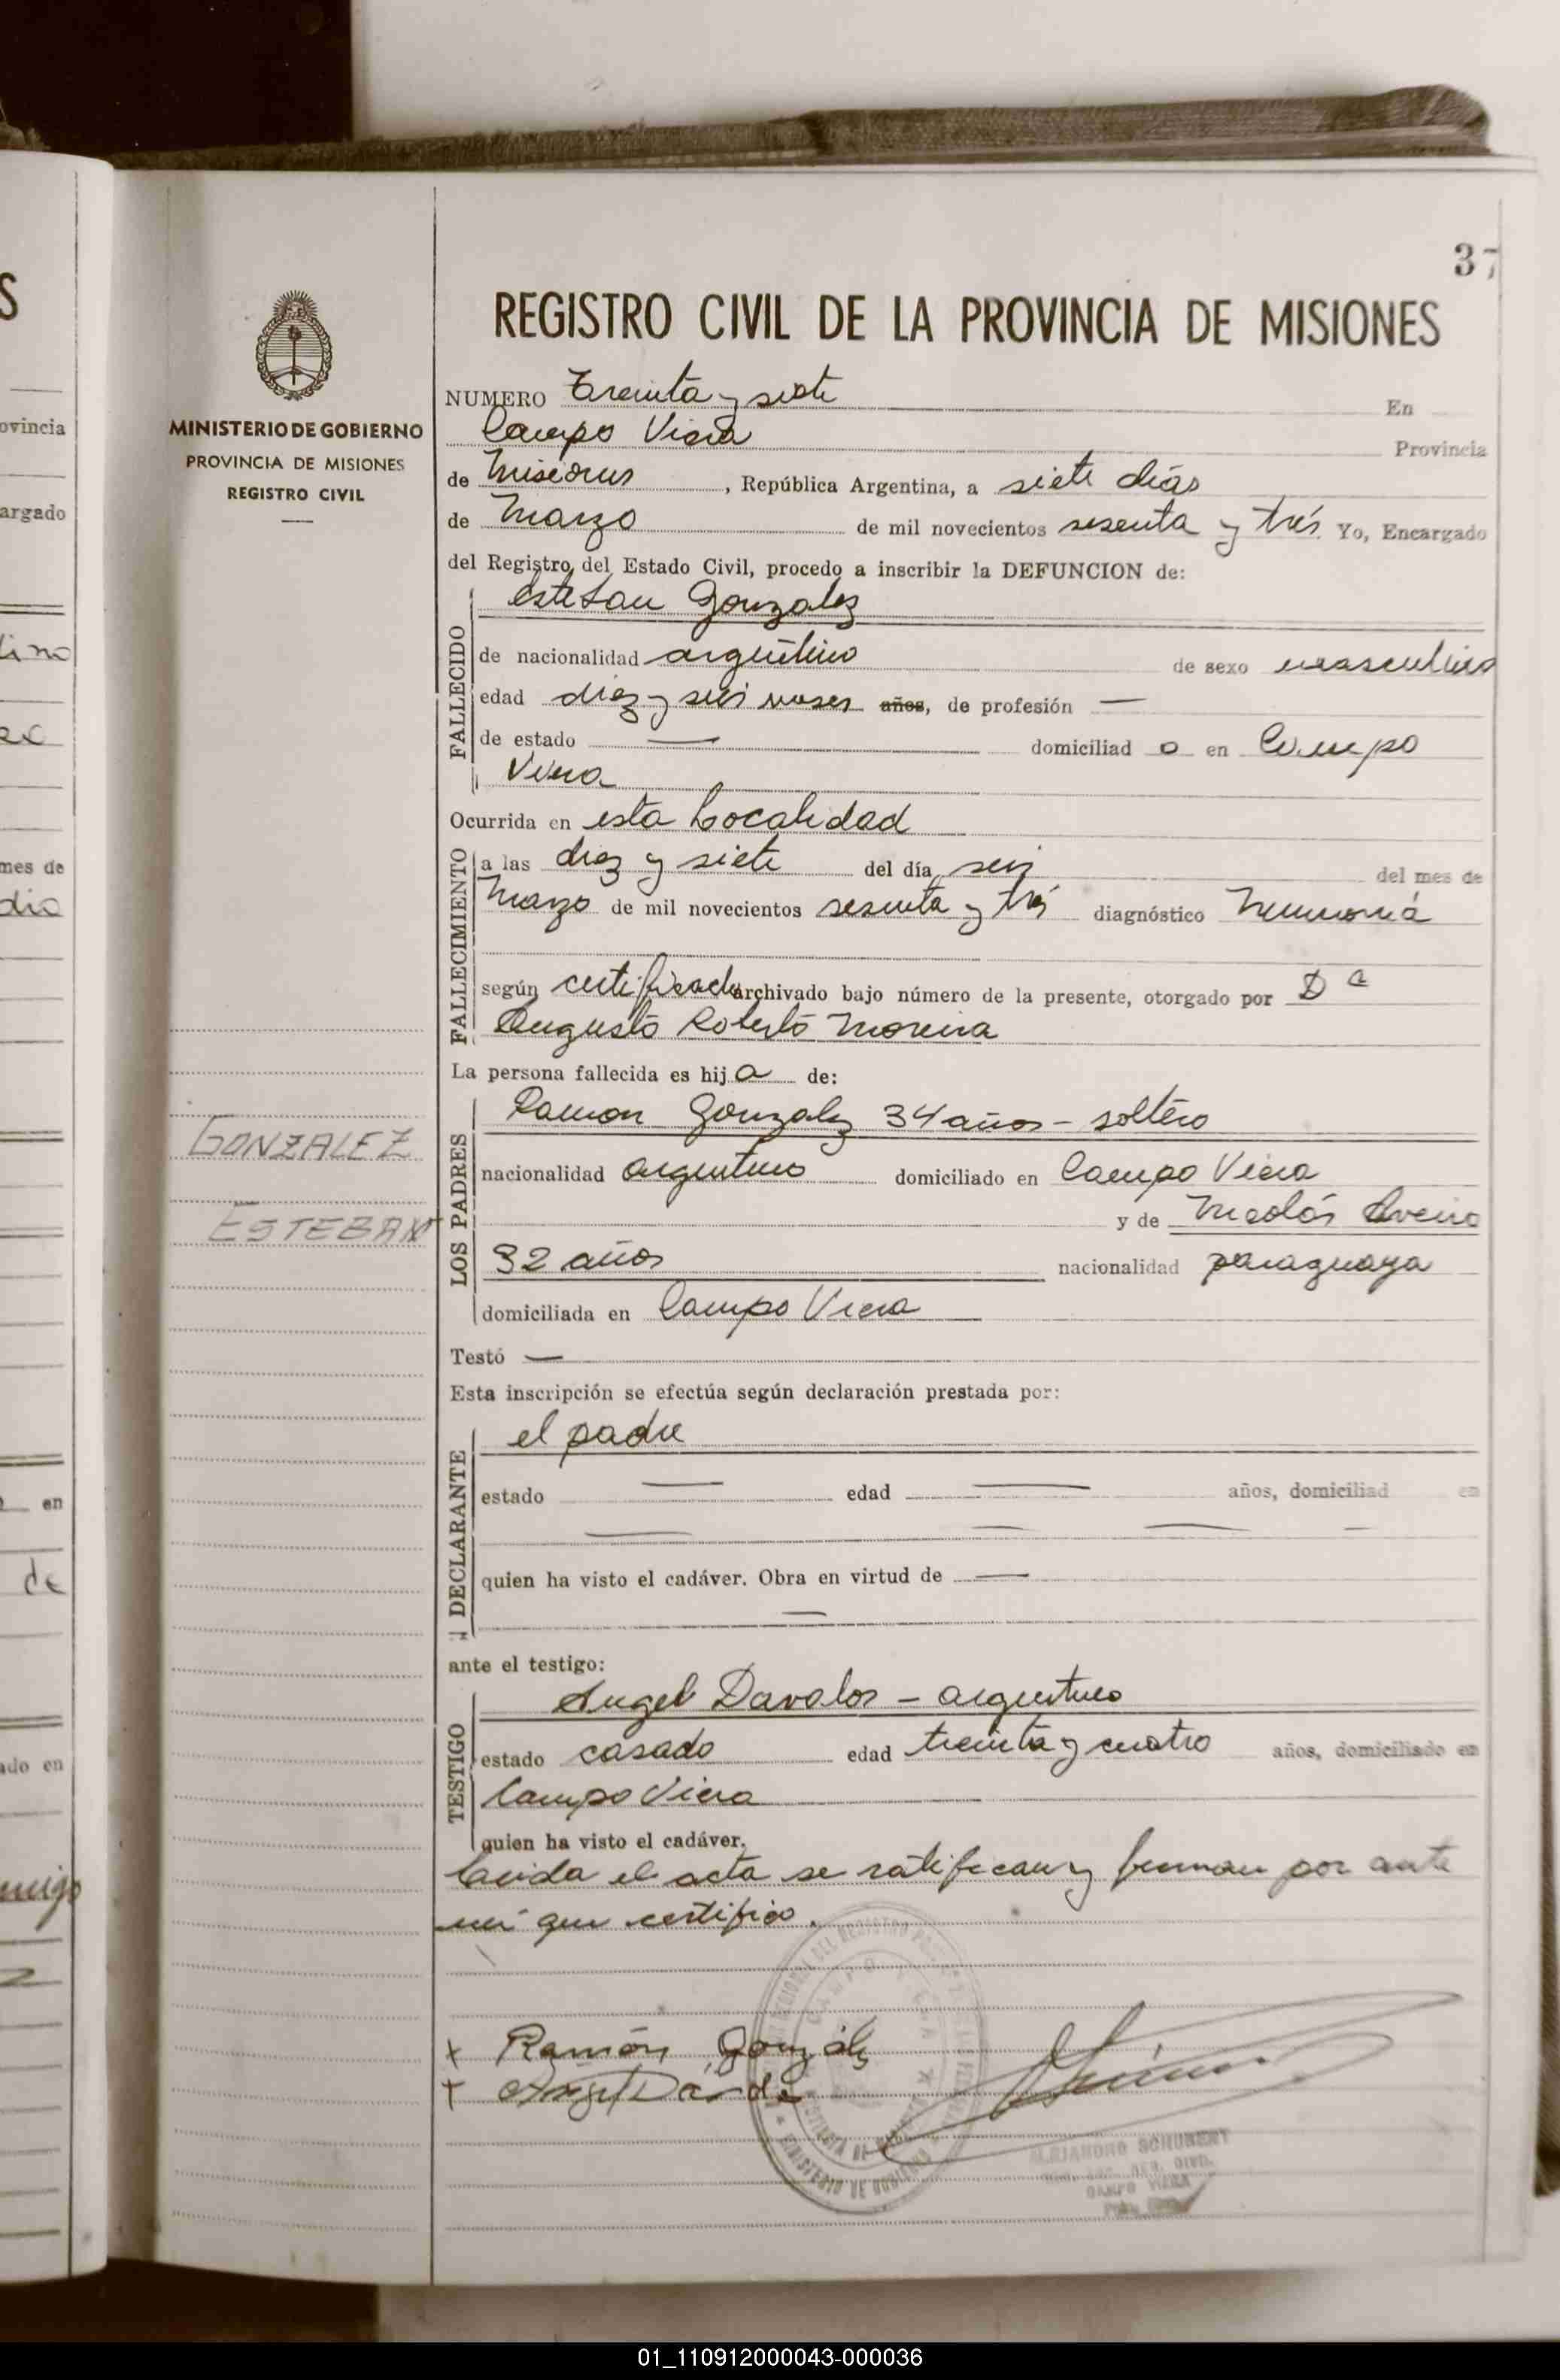 37
REGISTRO CIVIL DE LA PROVINCIA DE MISIONES
MINISTERIO DE GOBIERNO
PROVINCIA DE MISIONES
REGISTRO CIVIL
NUMERO Treinta y siete En
Campo Viera Provincia
de Misiones, República Argentina, a siete días
de Marzo de mil novecientos sesenta y trés. Yo, Encargado
del Registro del Estado Civil, procedo a inscribir la DEFUNCION de:
FALLECIDO
Esteban Gonzalez
de nacionalidad argentino de sexo masculino
edad diez y seis meses años, de profesión —
de estado — domiciliad o en Campo
Viera
Ocurrida en esta Localidad
FALLECIMIENTO
a las diez y siete del día seis del mes de
Marzo de mil novecientos sesenta y trés diagnóstico
según certificado archivado bajo número de la presente, otorgado por
Augusto Roberto Moreira
La persona fallecida es hij o de:
LOS PADRES
Ramon Gonzalez 34 años - soltero
nacionalidad argentino domiciliado en Campo Viera
y de
32 años nacionalidad paraguaya
domiciliada en Campo Viera
GONZALEZ
ESTEBAN
Testó —
Esta inscripción se efectúa según declaración prestada por:
DECLARANTE
el padre
estado — edad — años, domiciliad en
— — — —
quien ha visto el cadáver. Obra en virtud de —
—
ante el testigo:
TESTIGO
Angel Davalos - argentino
estado casado edad treinta y cuatro años, domiciliado en
Campo Viera
quien ha visto el cadáver.
Leida el acta se ratifican y firman por ante
mi que certifico.
x Ramón Gonzalez
+
ALEJANDRO SCHUBERT
CAMPO VIERA
MINISTERIO DE GOBIERNO
ovincia
argado
mes de
en
de
ado en
01_110912000043-000036